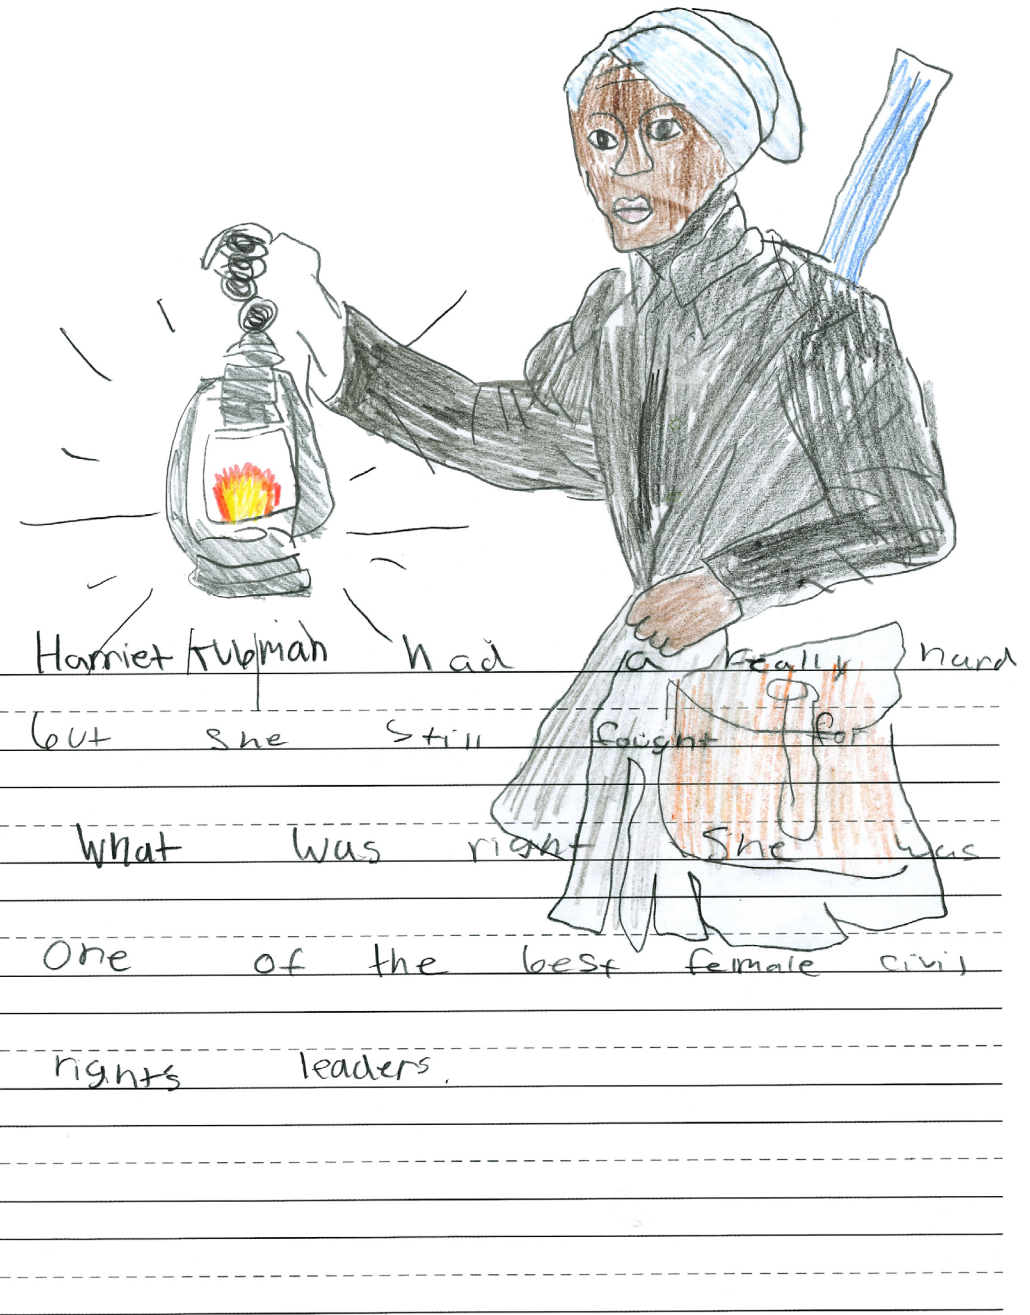 Harriet tubman had a really hard
but she still fought for
What was right She was
One of the best female civil
rights leaders.